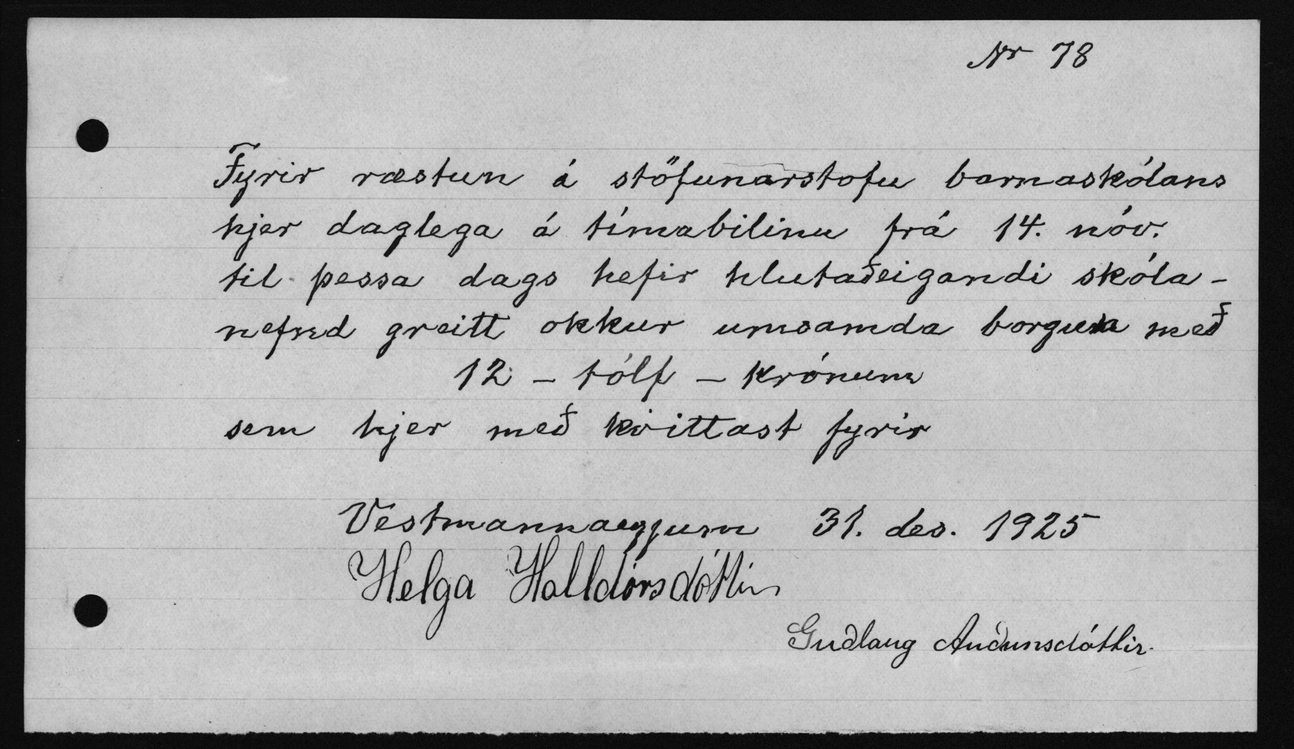 Nr 78
Fyrir ræstun á stöfunarstofu barnaskólans
hjer daglega á tímabilinu frá 14. nóv.
til þessa dags hefir hlutaðeigandi skóla-
nefnd greitt okkur umsamda borgun með
12 - tólf - krónum
sem hjer með kvittast fyrir
Vestmannaeyjum 31. des. 1925
Helga Halldórsdóttir
Guðlaug Auðunsdóttir.